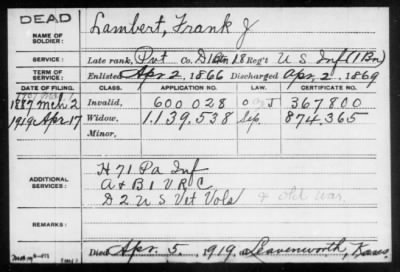 DEAD
NAME OF SOLDIER: Lambert, Frank J
SERVICE: Late rank, Pvt Co. D 1 Bn 18 Reg't U S Inf (1 Bn)
TERM OF SERVICE: Enlisted Apr 2, 1866 Discharged Apr. 2, 1869
DATE OF FILING. CLASS. APPLICATION NO. LAW. CERTIFICATE NO.
1887 Mch 2 Invalid, 600.028 J 367.800
1919 Apr 17 Widow, 1.139.538 Sep. 874.365
Minor.
ADDITIONAL SERVICES: H 71 Pa Inf
A & B 1 V R C
D 2 U S Vet Vols & old war
REMARKS:
Died Apr. 5, 1919, Leavenworth, Kans.